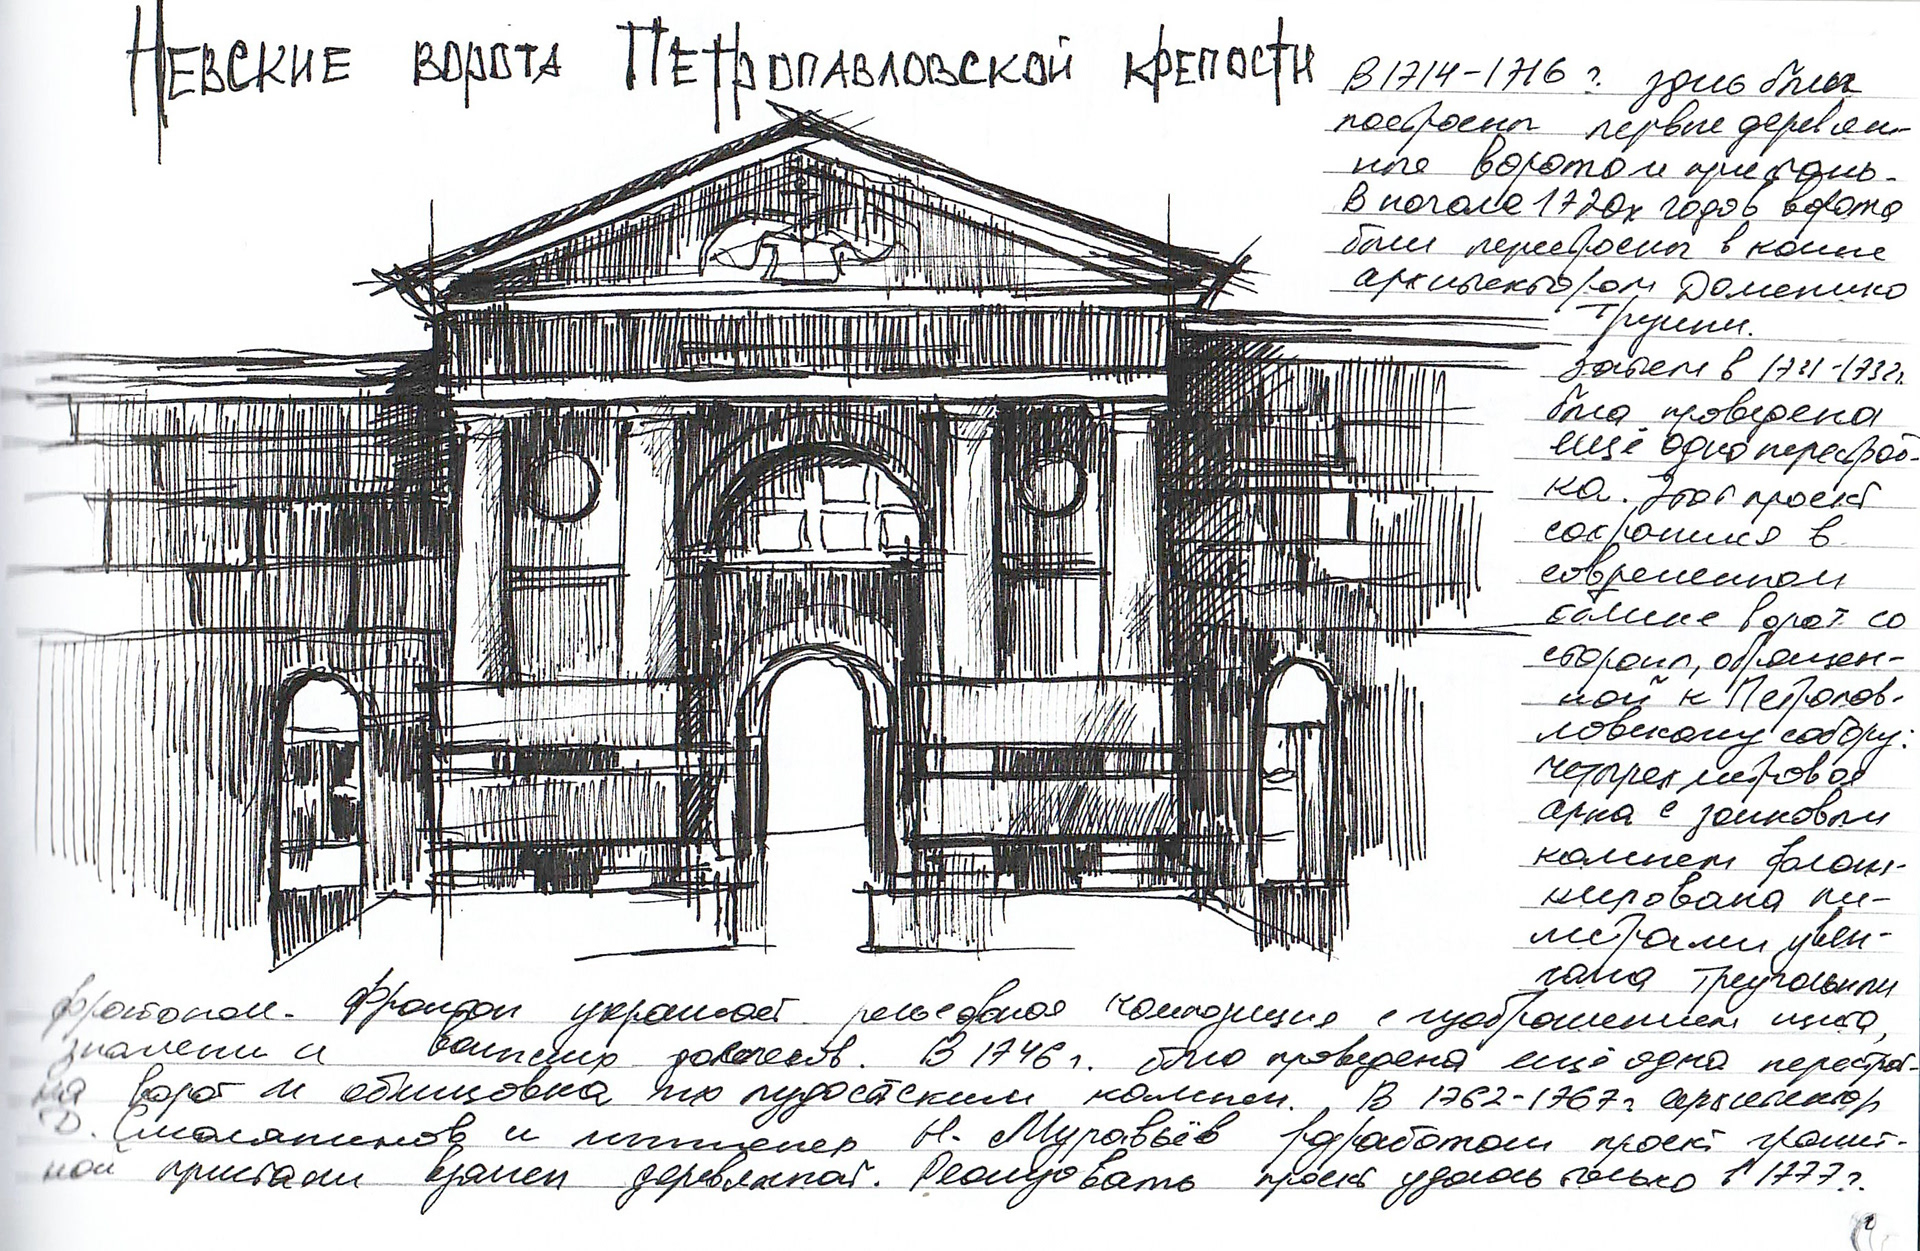 Невские ворота Петропавловской крепости
В 1714-1716 г. здесь были
построены первые деревян-
ные ворота и пристань.
В начале 1720х годов ворота
были перестроены в камне
архитектором Доменико
Трезини.
Затем в 1731-1732г.
была проведена
ещё одна перестрой-
ка. Этот проект
сохранился в
современном
облике ворот со
стороны, обращен-
ной к Петропав-
ловскому собору:
четырехметровая
арка с замковым
камнем фланк-
кирована пи-
лястрами увен-
чана треугольным
фронтоном. Фронтон украшает рельефная композиция с изображением щита,
знамени и воинских доспехов. В 1746 г. была проведена ещё одна перестрой-
ка ворот и облицовка их пудостским камнем. В 1762-1767г. архитектор
Д. Смолянинов и инженер Н. Муравьёв разработали проект гранит-
ной пристани взамен деревянной. Реализовать проект удалось только в 1777 г.